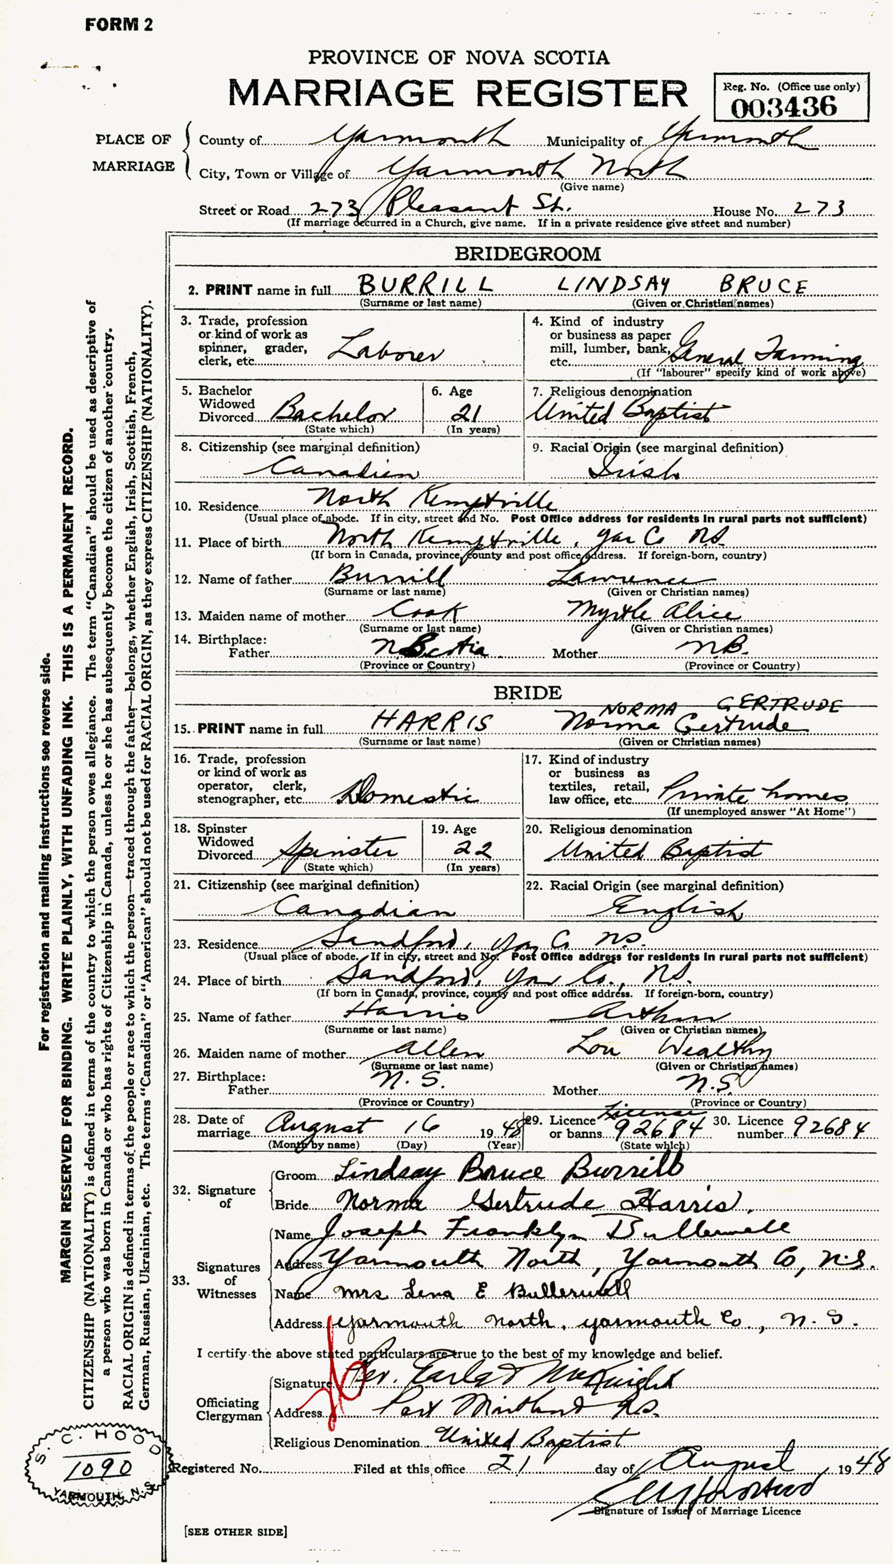 FORM 2
PROVINCE OF NOVA SCOTIA
MARRIAGE REGISTER
Reg. No. (Office use only)
003436
PLACE OF MARRIAGE
County of Yarmouth Municipality of Yarmouth
City, Town or Village of Yarmouth North
(Give name)
Street or Road 273 Pleasant St. House No. 273
(If marriage occurred in a Church, give name. If in a private residence give street and number)
BRIDEGROOM
2. PRINT name in full BURRILL LINDSAY BRUCE
(Surname or last name) (Given or Christian names)
3. Trade, profession or kind of work as spinner, grader, clerk, etc. Laborer
4. Kind of industry or business as paper mill, lumber, bank, etc. General Farming
(If "labourer" specify kind of work above)
5. Bachelor Widowed Divorced Bachelor
(State which)
6. Age 21
(In years)
7. Religious denomination
United Baptist
8. Citizenship (see marginal definition)
Canadien
9. Racial Origin (see marginal definition)
Irish
10. Residence North Kemptville
(Usual place of abode. If in city, street and No. Post Office address for residents in rural parts not sufficient)
11. Place of birth North Kemptville, Yar Co NS
(If born in Canada, province, county and post office address. If foreign-born, country)
12. Name of father Burrill Lawrence
(Surname or last name) (Given or Christian names)
13. Maiden name of mother Cook Myrtle Alice
(Surname or last name) (Given or Christian names)
14. Birthplace:
Father N Scotia Mother N.B.
(Province or Country) (Province or Country)
BRIDE
NORMA GERTRUDE
15. PRINT name in full HARRIS Norma Gertrude
(Surname or last name) (Given or Christian names)
16. Trade, profession or kind of work as operator, clerk, stenographer, etc. Domestic
17. Kind of industry or business as textiles, retail, law office, etc. Private homes
(If unemployed answer "At Home")
18. Spinster Widowed Divorced Spinster
(State which)
19. Age 22
(In years)
20. Religious denomination
United Baptist
21. Citizenship (see marginal definition)
Canadian
22. Racial Origin (see marginal definition)
English
23. Residence Sandford, Yar Co NS.
(Usual place of abode. If in city, street and No. Post Office address for residents in rural parts not sufficient)
24. Place of birth Sandford, Yar Co., NS.
(If born in Canada, province, county and post office address. If foreign-born, country)
25. Name of father Harris Arthur
(Surname or last name) (Given or Christian names)
26. Maiden name of mother Allen Lou Wealthy
(Surname or last name) (Given or Christian names)
27. Birthplace:
Father N.S. Mother N.S.
(Province or Country) (Province or Country)
28. Date of marriage August 16 1948
(Month by name) (Day) (Year)
29. Licence or banns License 92684
(State which)
30. Licence number 92684
32. Signature of
Groom Lindsay Bruce Burrill
Bride Norma Gertrude Harris.
33. Signatures of Witnesses
Name Joseph Franklyn Bullerwell
Address Yarmouth North, Yarmouth Co, N.S.
Name Mrs Lena E Bullerwell
Address Yarmouth North, Yarmouth Co., N.S.
I certify the above stated particulars are true to the best of my knowledge and belief.
Officiating Clergyman
Signature Rev. McKnight
Address Port Maitland NS.
Religious Denomination United Baptist
Registered No. Filed at this office 21 day of August, 1948
Signature of Issuer of Marriage Licence
[SEE OTHER SIDE]
For registration and mailing instructions see reverse side.
MARGIN RESERVED FOR BINDING. WRITE PLAINLY, WITH UNFADING INK. THIS IS A PERMANENT RECORD.
CITIZENSHIP (NATIONALITY) is defined in terms of the country to which the person owes allegiance. The term "Canadian" should be used as descriptive of
a person who was born in Canada or who has rights of Citizenship in Canada, unless he or she has subsequently become the citizen of another country.
RACIAL ORIGIN is defined in terms of the people or race to which the person—traced through the father—belongs, whether English, Irish, Scottish, French,
German, Russian, Ukrainian, etc. The terms "Canadian" or "American" should not be used for RACIAL ORIGIN, as they express CITIZENSHIP (NATIONALITY).
S. C. HOOD
1090
YARMOUTH, N.S.